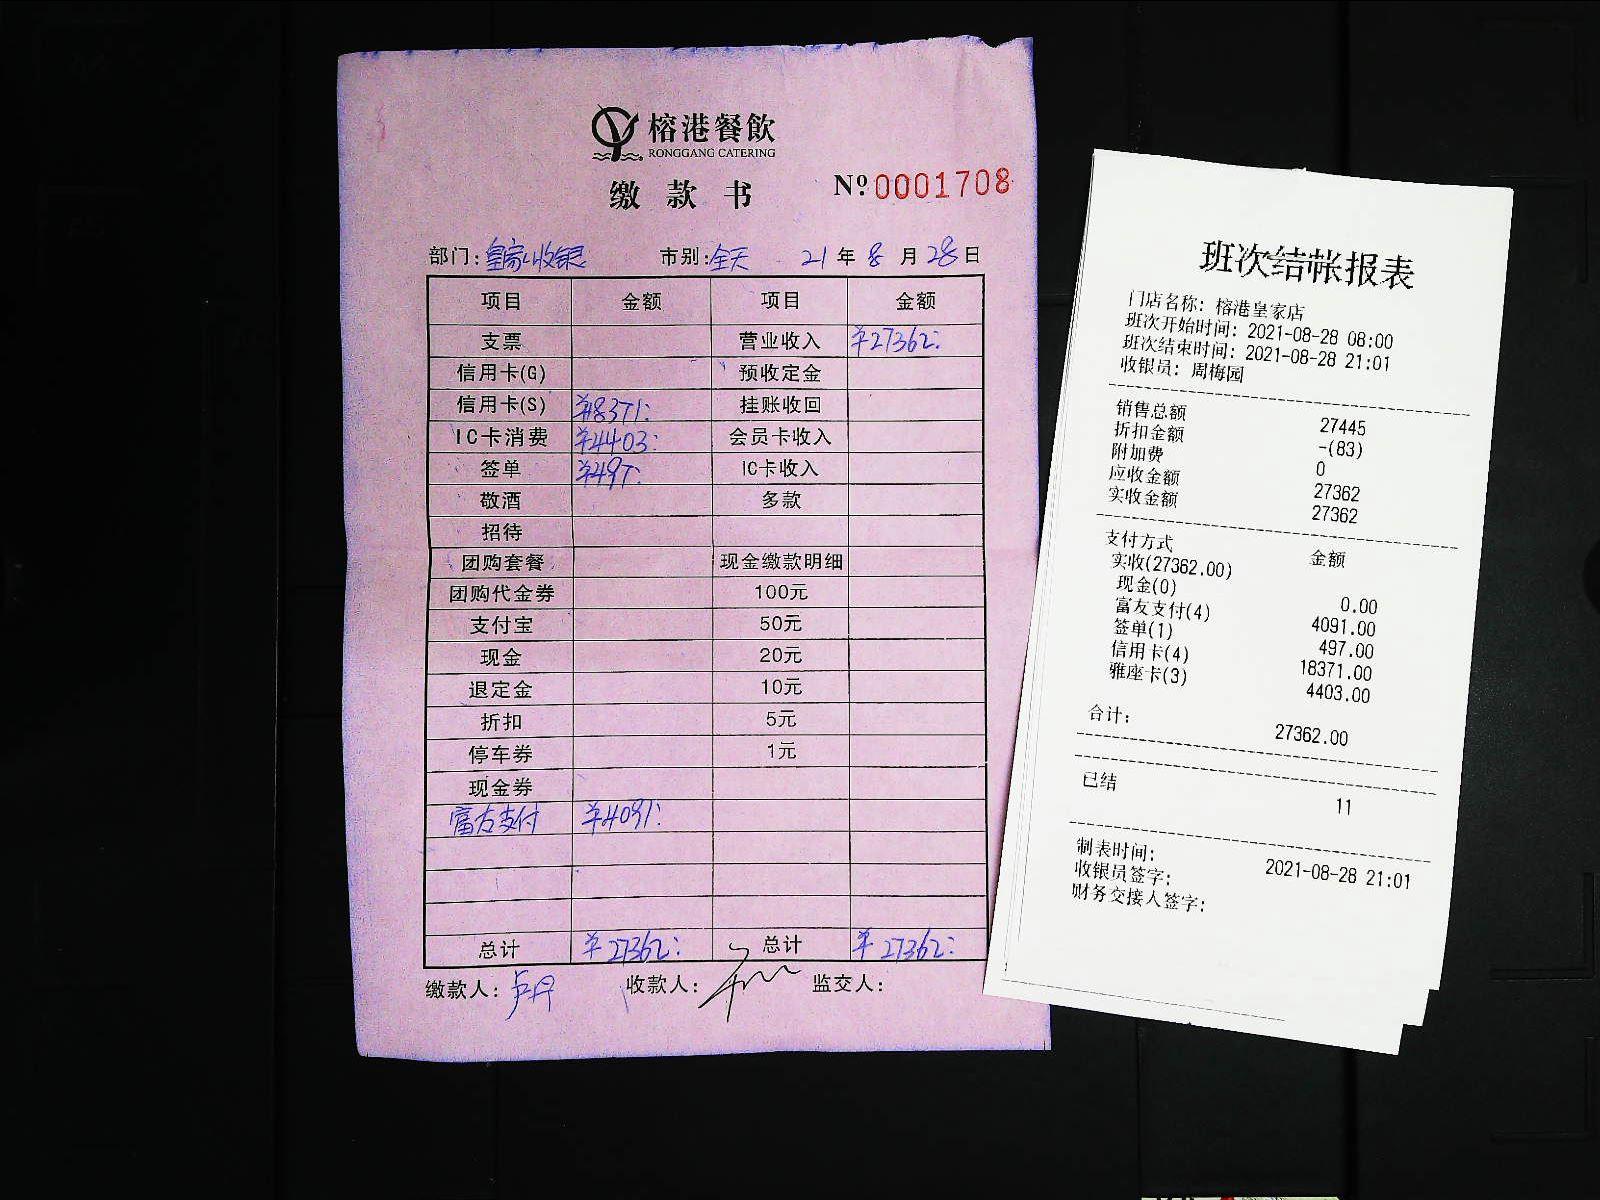 榕港餐飲
RONGGANG CATERING
缴款书
№0001708
部门:皇家收银 市别:全天 21年8月28日
项目 金额 项目 金额
支票 营业收入 ¥27362:
信用卡(G) 预收定金
信用卡(S) ¥18371: 挂账收回
IC卡消费 ¥4403: 会员卡收入
签单 ¥497: IC卡收入
敬酒 多款
招待
团购套餐 现金缴款明细
团购代金券 100元
支付宝 50元
现金 20元
退定金 10元
折扣 5元
停车券 1元
现金券
富友支付 ¥4091:
总计 ¥27362: 总计 ¥27362:
缴款人:卢丹 收款人: 监交人:
班次结帐报表
门店名称: 榕港皇家店
班次开始时间: 2021-08-28 08:00
班次结束时间: 2021-08-28 21:01
收银员: 周梅园
销售总额 27445
折扣金额 -(83)
附加费 0
应收金额 27362
实收金额 27362
支付方式 金额
实收(27362.00)
现金(0) 0.00
富友支付(4) 4091.00
签单(1) 497.00
信用卡(4) 18371.00
雅座卡(3) 4403.00
合计: 27362.00
已结 11
制表时间: 2021-08-28 21:01
收银员签字:
财务交接人签字: